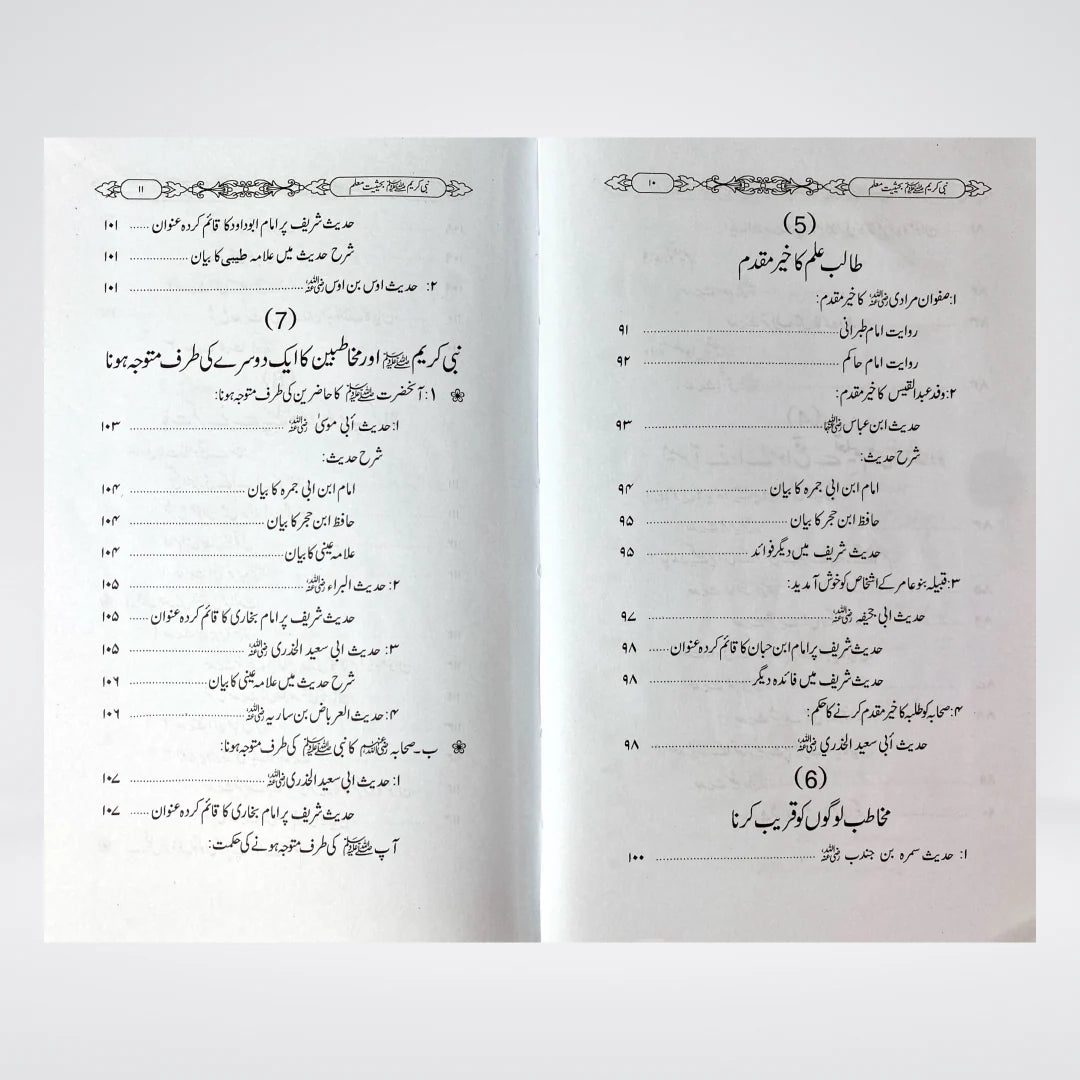 نبی کریم ﷺ بحیثیت معلم ۱۰
(5)
طالب علم کا خیر مقدم
۱: صفوان مرادی رضی اللہ عنہ کا خیر مقدم:
روایت امام طبرانی ............ ۹۱
روایت امام حاکم ............ ۹۲
۲: وفد عبد القیس کا خیر مقدم:
حدیث ابن عباس رضی اللہ عنہما ............ ۹۳
شرح حدیث:
امام ابن ابی جمرہ کا بیان ............ ۹۴
حافظ ابن حجر کا بیان ............ ۹۵
حدیث شریف میں دیگر فوائد ............ ۹۵
۳: قبیلہ بنو عامر کے اشخاص کو خوش آمدید:
حدیث ابی جحیفہ رضی اللہ عنہ ............ ۹۷
حدیث شریف پر امام ابن حبان کا قائم کردہ عنوان ...... ۹۸
حدیث شریف میں فائدہ دیگر ............ ۹۸
۴: صحابہ کو طلبہ کا خیر مقدم کرنے کا حکم:
حدیث أبي سعيد الخدري رضی اللہ عنہ ............ ۹۸
(6)
مخاطب لوگوں کو قریب کرنا
۱: حدیث سمرہ بن جندب رضی اللہ عنہ ............ ۱۰۰
نبی کریم ﷺ بحیثیت معلم ۱۱
حدیث شریف پر امام ابو داود کا قائم کردہ عنوان ...... ۱۰۱
شرح حدیث میں علامہ طیبی کا بیان ............ ۱۰۱
۲: حدیث اوس بن اوس رضی اللہ عنہ ............ ۱۰۱
(7)
نبی کریم ﷺ اور مخاطبین کا ایک دوسرے کی طرف متوجہ ہونا
۱: آنحضرت ﷺ کا حاضرین کی طرف متوجہ ہونا:
۱: حدیث أبی موسیٰ رضی اللہ عنہ ............ ۱۰۳
شرح حدیث:
امام ابن ابی جمرہ کا بیان ............ ۱۰۴
حافظ ابن حجر کا بیان ............ ۱۰۴
علامہ عینی کا بیان ............ ۱۰۴
۲: حدیث البراء رضی اللہ عنہ ............ ۱۰۵
حدیث شریف پر امام بخاری کا قائم کردہ عنوان ...... ۱۰۵
۳: حدیث ابی سعید الخدری رضی اللہ عنہ ............ ۱۰۵
شرح حدیث میں علامہ عینی کا بیان ............ ۱۰۶
۴: حدیث العرباض بن ساریہ رضی اللہ عنہ ............ ۱۰۶
ب۔ صحابہ رضی اللہ عنہم کا نبی ﷺ کی طرف متوجہ ہونا:
۱: حدیث ابی سعید الخدری رضی اللہ عنہ ............ ۱۰۷
حدیث شریف پر امام بخاری کا قائم کردہ عنوان ...... ۱۰۷
آپ ﷺ کی طرف متوجہ ہونے کی حکمت: